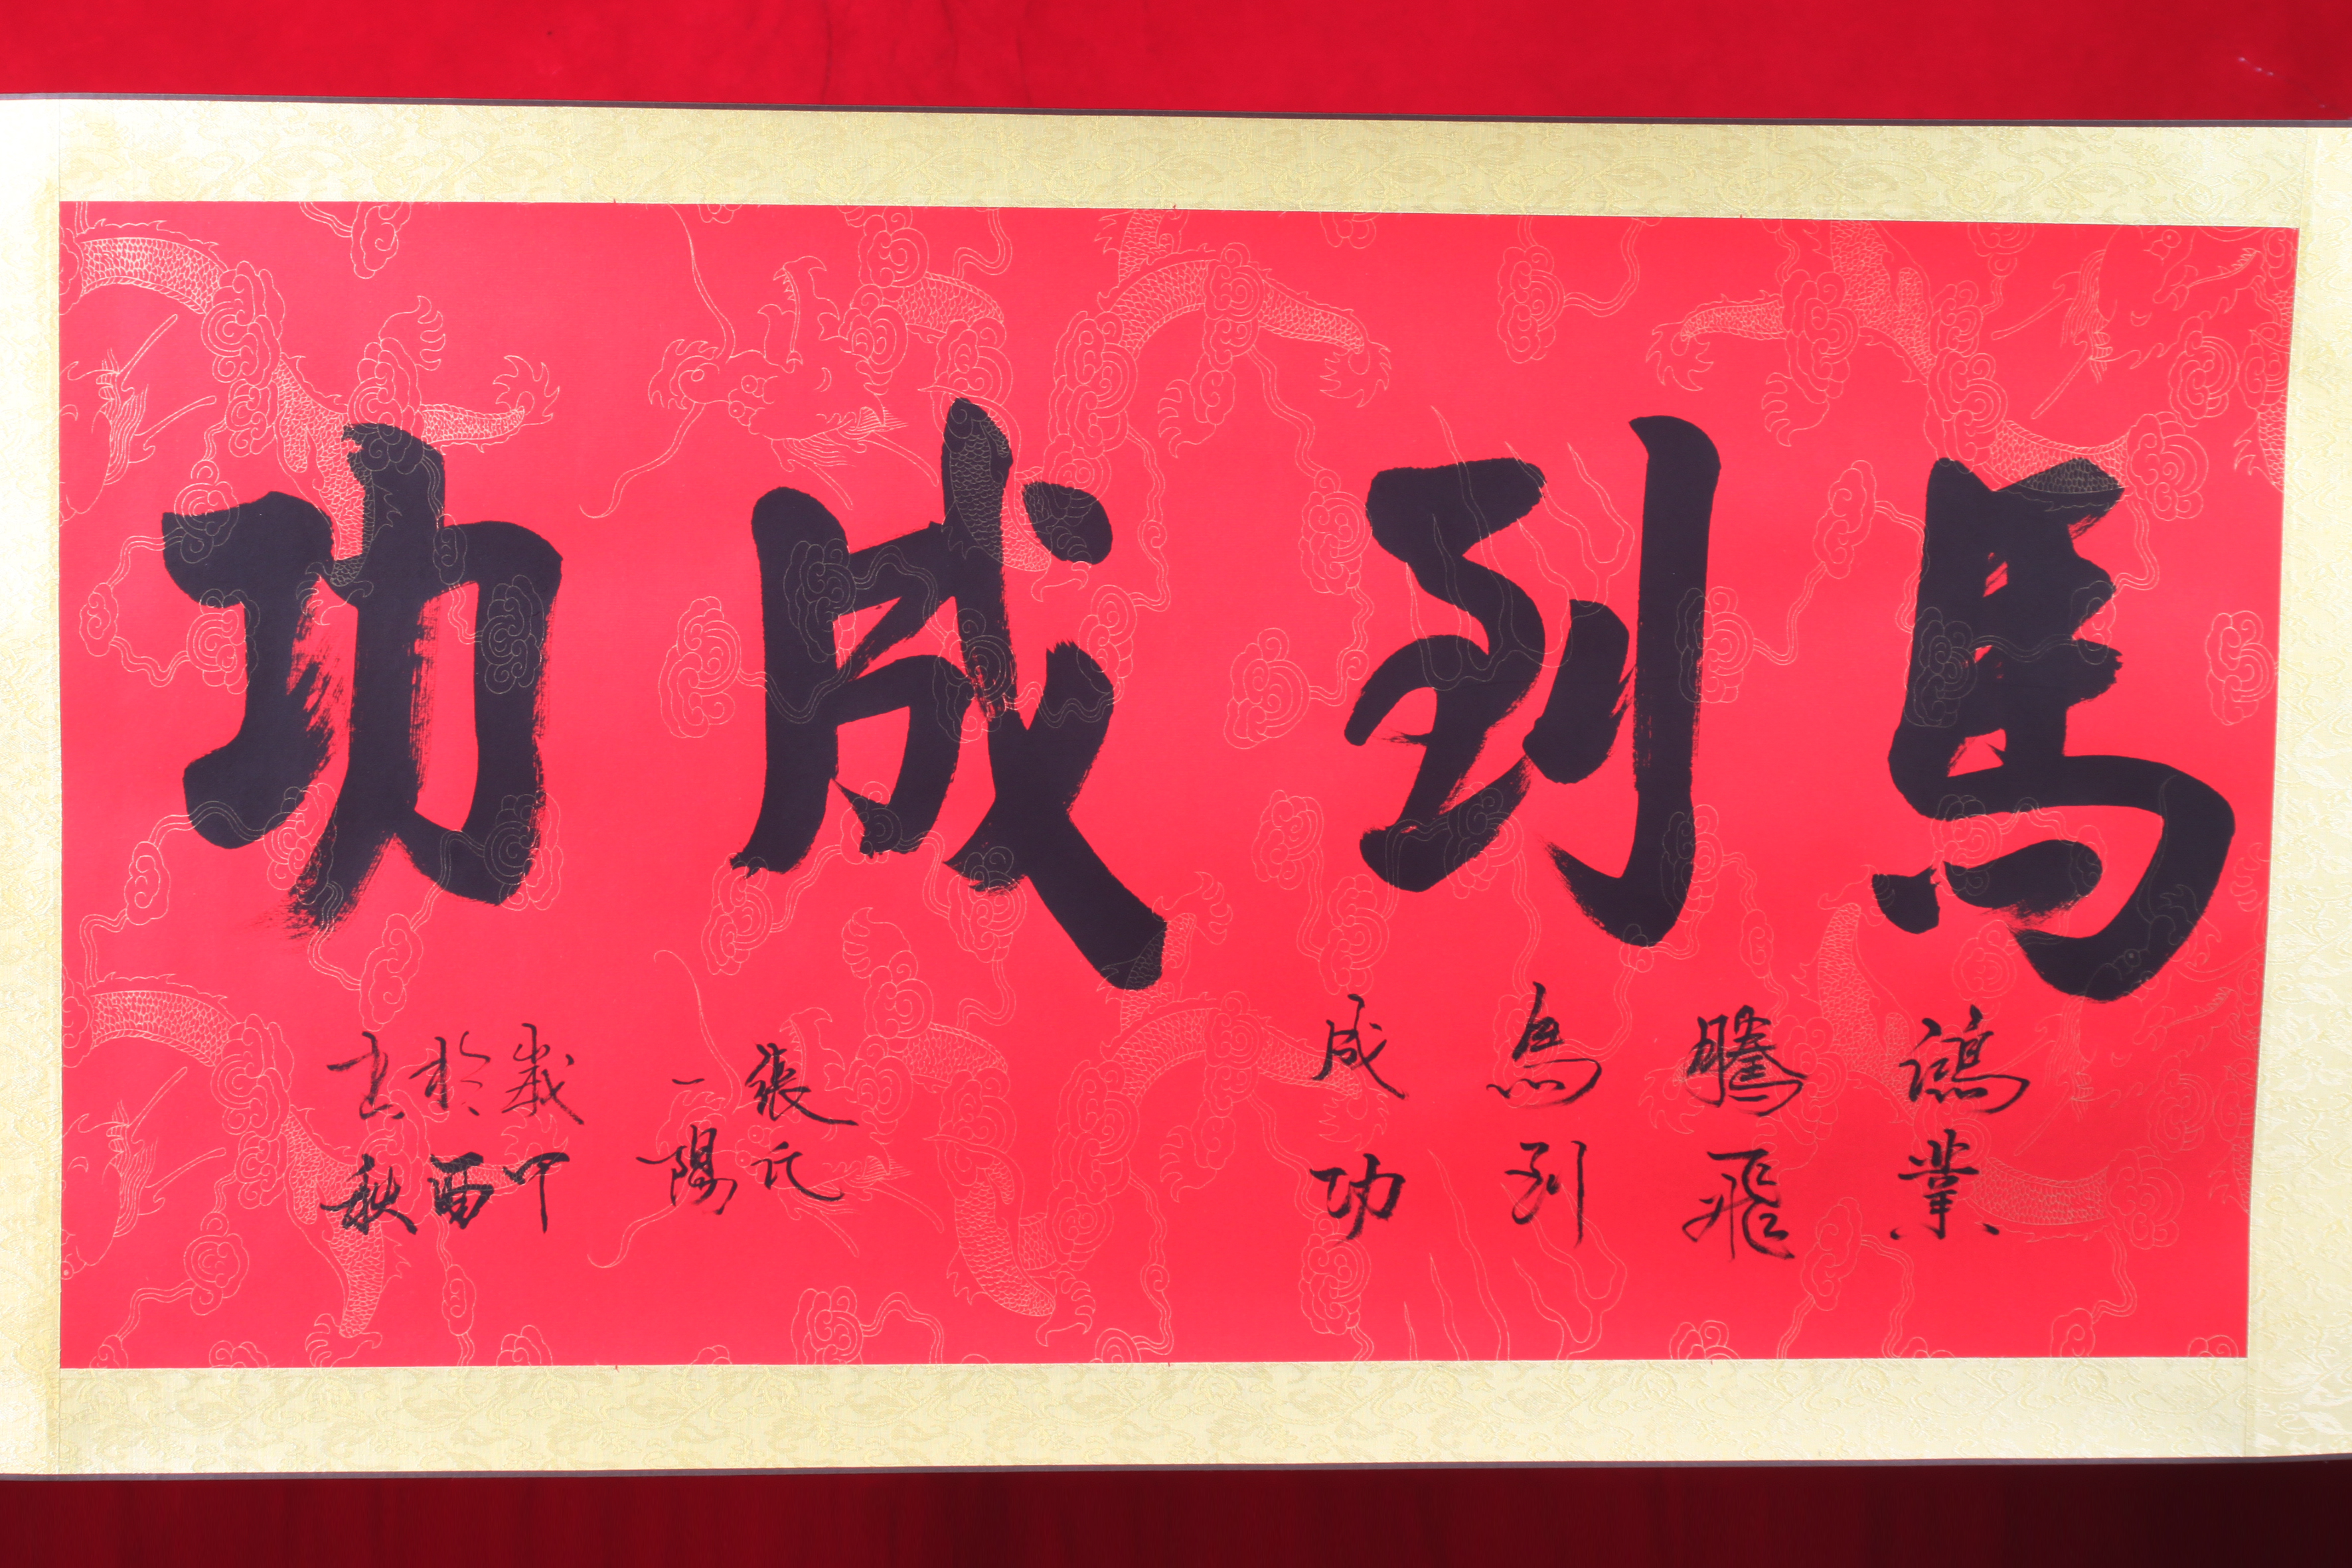 馬到成功
鴻業
騰飛
馬到
成功
張
一陽
歲
於酉
書秋